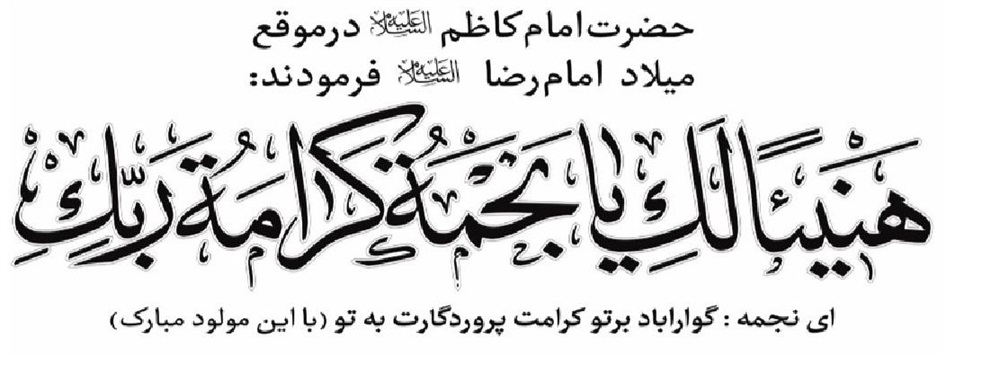 حضرت امام کاظم علیه السلام درموقع
میلاد امام رضا علیه السلام فرمودند:
هَنیئاً لَکِ یا نَجْمَةُ کَرامَةُ رَبِّکِ
ای نجمه : گواراباد برتو کرامت پروردگارت به تو (با این مولود مبارک)